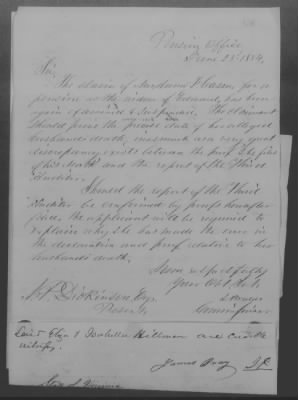 Pension Office
June 28th 1854.
Sir,
The claim of
pension as the widow of Edward, has been
again examined & suspended. The claimant
should prove the precise date of her alleged
husband's death, inasmuch as a very great
discrepancy exists between the proof she files
of his death and the report of the Third
Auditor.
Should the report of the Third
Auditor be confirmed by proofs hereafter
filed, the applicant will be required to
explain why she has made the error in
the declaration and proof relative to her
husband's death.
I am respectfully
Your Obt. Servt.
Dickinson, Esqr.
Present
Commissioner
& Isabella Hillman are credible
witnesses.
James